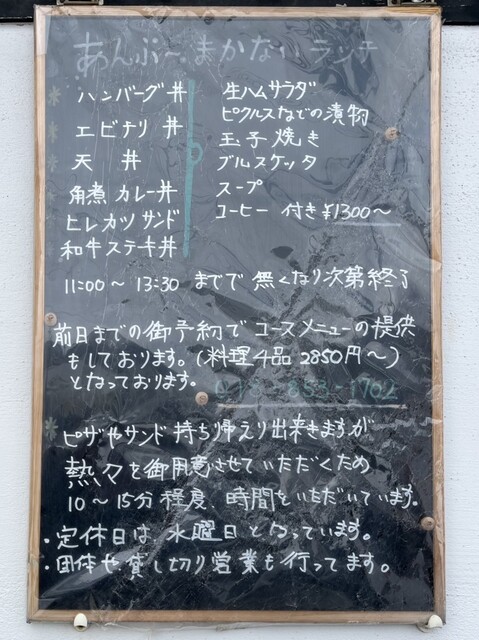 あんぷ〜まかないランチ
ハンバーグ丼
エビチリ丼
天丼
角煮カレー丼
ヒレカツサンド
和牛ステーキ丼
生ハムサラダ
ピクルスなどの漬物
玉子焼き
ブルスケッタ
スープ
コーヒー 付き ¥1300〜
11:00〜13:30 までで 無くなり次第終了
前日までの御予約で コースメニューの提供
もしております。(料理4品 2850円〜)
となっております。
ピザやサンド 持ち帰えり出来きますが
熱々を御用意させていただくため
10〜15分程度、時間をいただいています。
・定休日は、水曜日となっています。
・団体や貸し切り営業も行ってます。